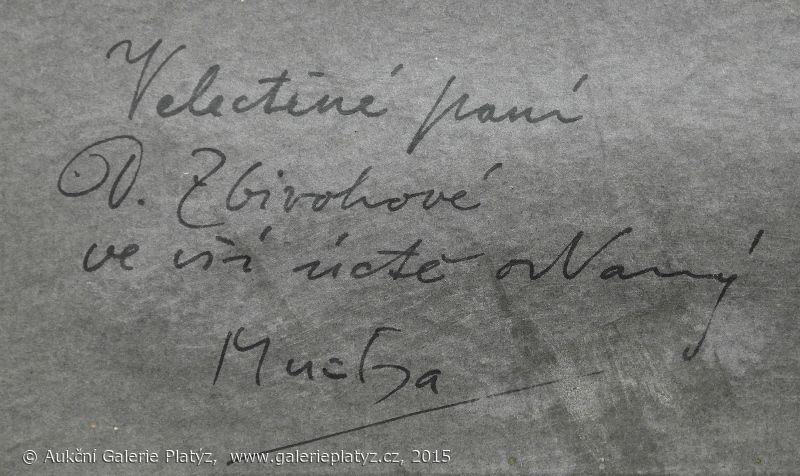 Velectěné paní
P. Zbirohové
ve vší úctě oddaný
Mucha
© Aukční Galerie Platýz, www.galerieplatyz.cz, 2015